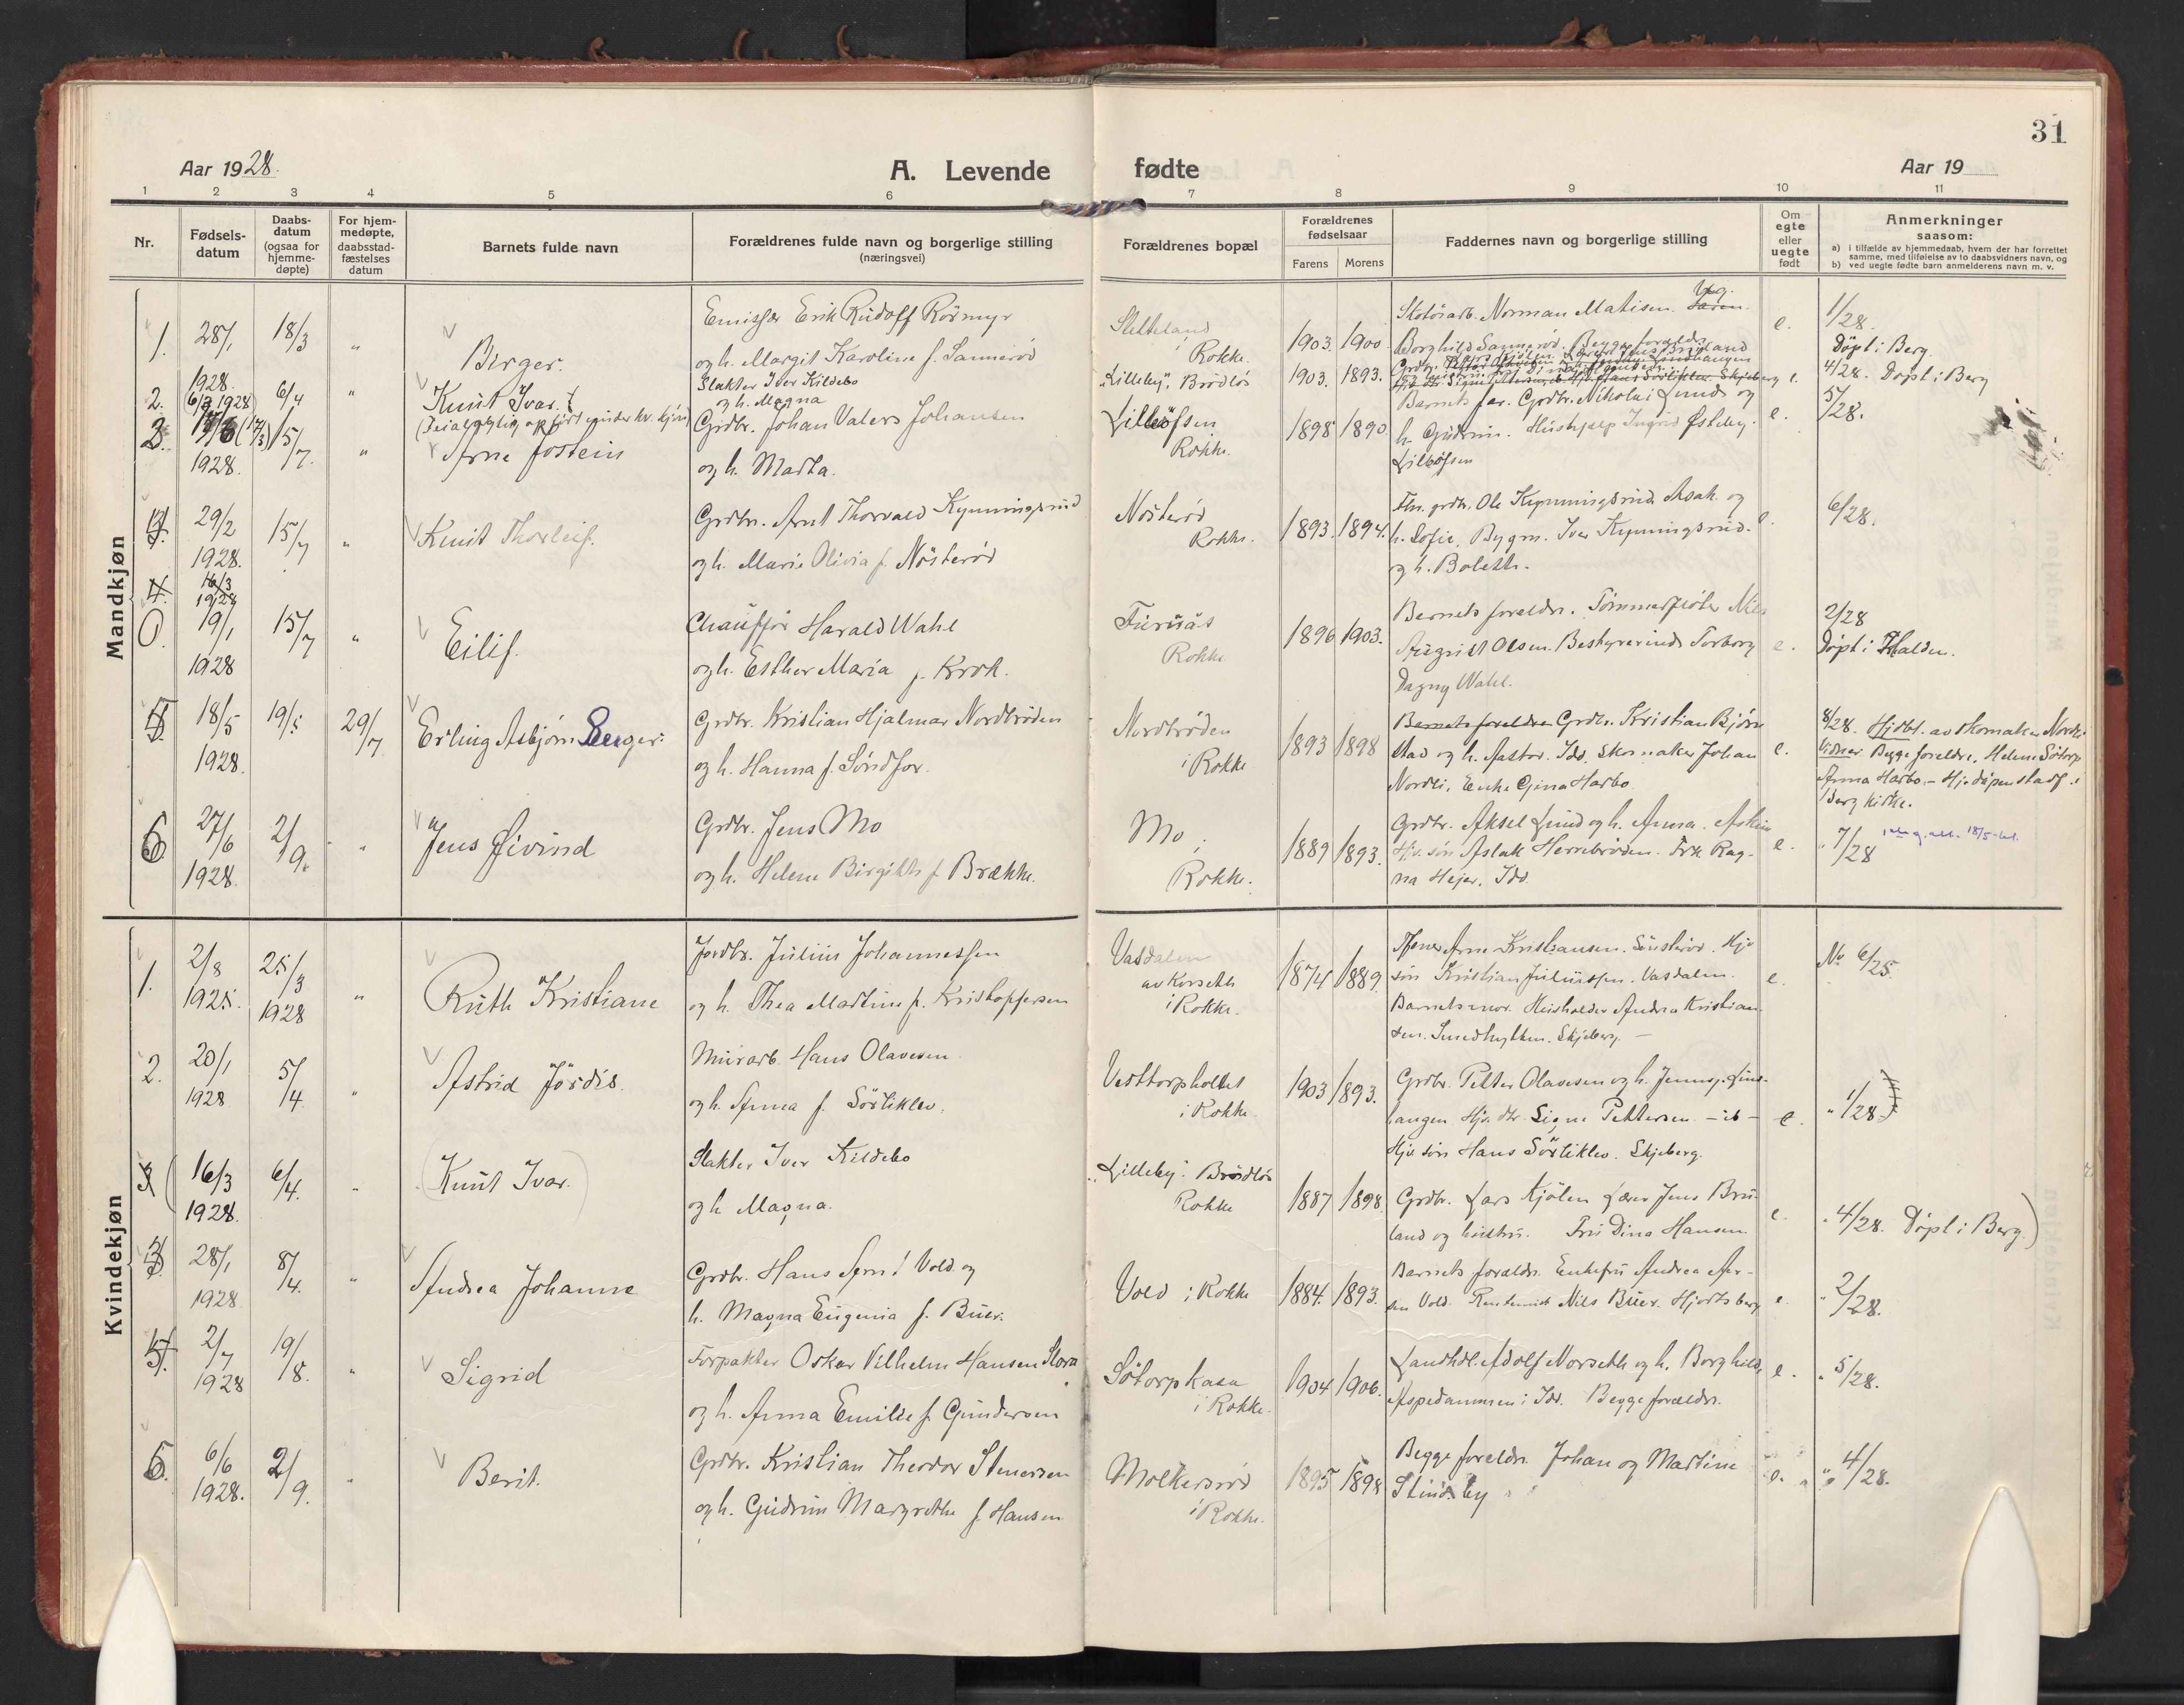 31
Aar 1928.
A. Levende
fødte
Aar 19
1 2 3 4 5 6 7 8 9 10 11
Nr.
Fødsels-
datum
Daabs-
datum
(ogsaa for
hjemme-
døpte)
For hjem-
medøpte,
daabsstad-
fæstelses
datum
Barnets fulde navn
Forældrenes fulde navn og borgerlige stilling
(næringsvei)
Forældrenes bopæl
Forældrenes
fødselsaar
Farens Morens
Faddernes navn og borgerlige stilling
Om
egte
eller
uegte
født
Anmerkninger
saasom:
a) i tilfælde av hjemmedaab, hvem der har forrettet
samme, med tilføielse av to daabsvidners navn, og
b) ved uegte fødte barn anmelderens navn m. v.
Mandkjøn
1. 28/1 1928. 18/3 "
Birger.
Emissær Erik Rudolf Rörmyr
og h. Margit Karoline f. Sannerød
Sletteland
Rokke.
1903. 1900
Skotöiarb. Norman Matisen.
Borghild Sannerød. Begge foreldre
e.
1/28.
Döpt i Berg.
2. 6/4 "
Knut Ivar.
Slakter Iver Kildebo
og h. Magna
"Lilleby", Brödlös
1903. 1893.
e.
4/28. Döpt i Berg
15/7. 1928. "
Arne Jostein
Grdbr. Johan Valers Johansen
og h. Marta.
Lilleöfsen
Rokke.
1898 1890
Barnets far. Grdbr. Nikolai Lunde og
h. Gudrun. Hushjelp Ingrid Østeby.
Lilleöfsen
e.
5/28.
29/2 1928. 15/7 "
Knut Thorleif.
Grdbr. Arnt Thorvald Kynningsrud
og h. Marie Olivia f. Nösteröd
Nösteröd
Rokke.
1893. 1894.
Fhv. grdbr. Ole Kynningsrud. Asak og
h. Sofie. Bygm. Iver Kynningsrud.
og h. Boleth.
e.
6/28.
19/1 1928 15/7 "
Eilif.
Chauffør Harald Wahl
og h. Esther Maria f. Krok.
Furuås
Rokke
1896 1903.
Barnets foreldre. Tömmerfløter Nils
August Olsen. Bestyrerinde Torborg
Dagny Wahl.
e.
2/28
Döpt i Halden.
18/5 1928. 19/5 29/7.
Erling Asbjørn Berger.
Grdbr. Kristian Hjalmar Nordbröden
og h. Hanna f. Söndfor.
Nordbröden
i Rokke
1893 1898
Barnets foreldre Grdbr. Kristian Bjørn
stad og h. Astor. Idd. Skomaker Johan
Nordli. Enke Gina Harbo
e.
8/28. Hjdbt. av skomaker Nordli
Vidner Begge foreldre. Helene Sötorp
Anna Harbo. – Hj.dåpen stadf. i
Berg kirke.
6 27/6 1928. 2/9. "
Jens Øivind
Grdbr. Jens Mo
og h. Helene Birgitte f. Brække.
Mo i
Rokke.
1889 1893.
Grdbr. Aksel Lund og h. Anna. Askim
Hjv. søn Aslak Herrebröden. Frk Rag-
na Hejer. Idd.
e.
" 7/28
Kvindekjøn
1. 2/8 1925. 25/3 1928 "
Ruth Kristiane
Jordbr. Julius Johannessen
og h. Thea Martine f. Kristoffersen
Vasdalen
av Korseth
i Rokke.
1874 1889.
Tjener Arne Kristiansen. Hjv
søn Kristian Juliussen. Vasdalen.
Barnets mor. Husholder Andrea Kristian-
sen. Smedhytten. Skjeberg. –
e.
Nr 6/25.
2. 20/1 1928 5/4 "
Astrid Jördis.
Murarb. Hans Olavesen
og h. Anna f. Sörtiklev.
Vesttorpholtet
i Rokke
1903 1893.
Grdbr. Petter Olavesen og h. Jenny. Lind-
haugen Hjv. dtr. Signe Pettersen – ib –
Hjv. søn Hans Sörtiklev. Skjeberg.
e.
" 1/28.
3 (16/3 1928. 6/4. "
(Knut Ivar.)
Slakter Iver Kildebo
og h Magna.
"Lilleby". Brödlös
Rokke
1887 1898.
Grdbr. Lars Kjölen Lærer Jens Bru-
land og hustru. Fru Dina Hansen
e.
" 4/28. Döpt i Berg.)
3 28/1 1928 8/4. "
Andrea Johanne
Grdbr. Hans Arnt Vold og
h. Magna Eugenia f. Buer.
Vold i Rokke
1884. 1893.
Barnets foreldre. Enkefru Andrea Ar-
sen Vold. Rentenist Nils Buer. Hjortsberg
e.
" 2/28.
2/7 1928 19/8. "
Sigrid
Forpakter Oskar Vilhelm Hansen Stora
og h. Anna Emilie f. Gundersen
Sötorpkasa
i Rokke.
1904 1906.
Landhdl. Adolf Norseth og h. Borghild,
Aspedammen i Idd. Begge foreldre.
e.
" 5/28.
6/6 1928. 2/9. "
Berit.
Grdbr. Kristian Theodor Stenersen
og h. Gudrun Margrethe f. Hansen
Molkersröd
i Rokke.
1895 1898
Begge foreldre. Johan og Martine
Stuisby
e.
" 4/28.